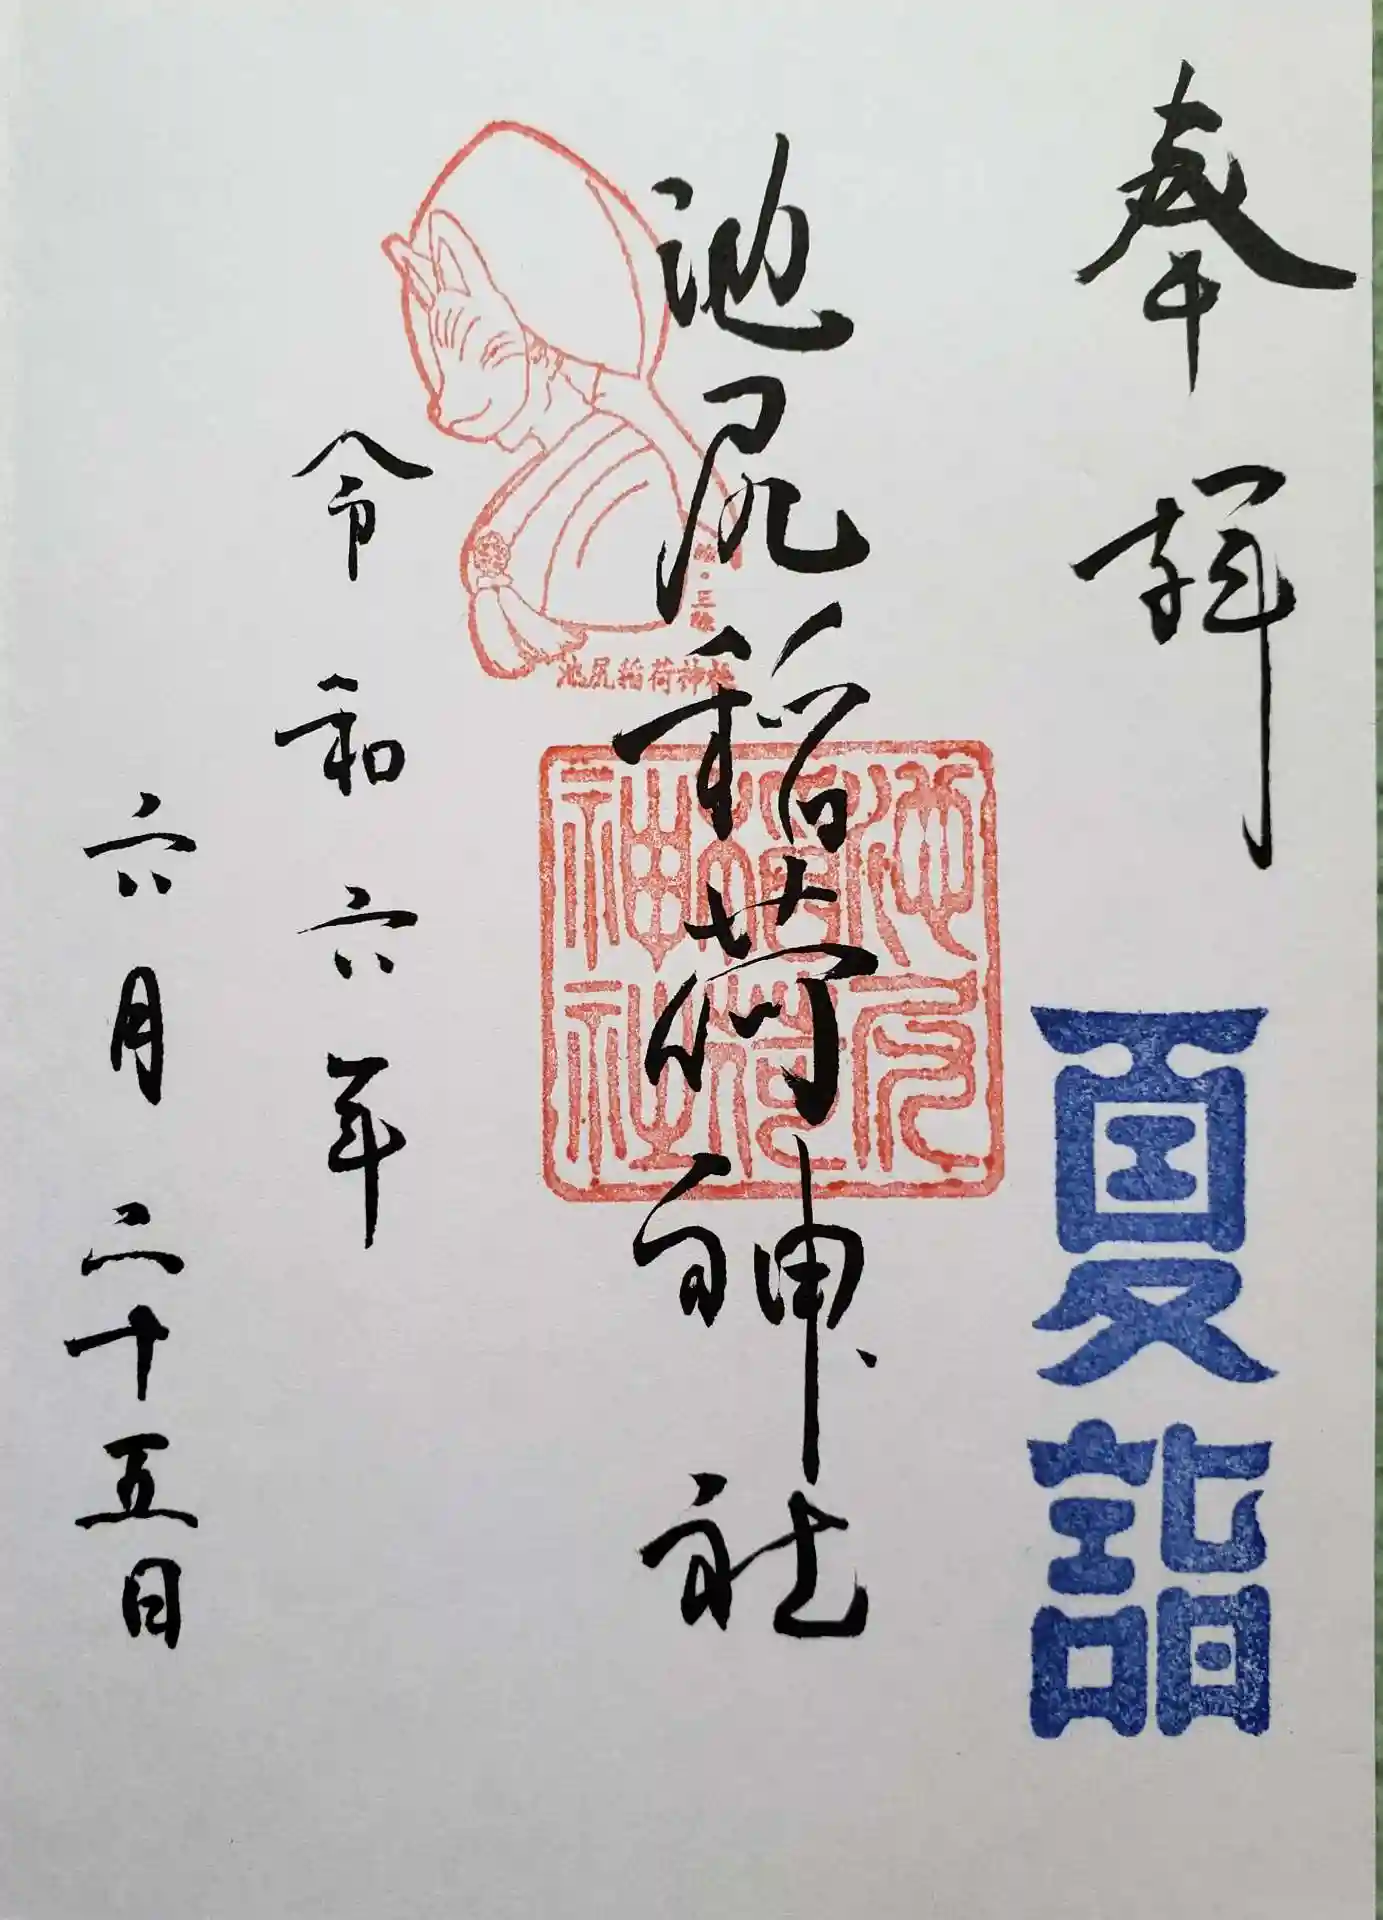 奉拝
夏詣
池尻稲荷神社
池尻稲荷神社
池尻稲荷神社
令和六年
六月二十五日